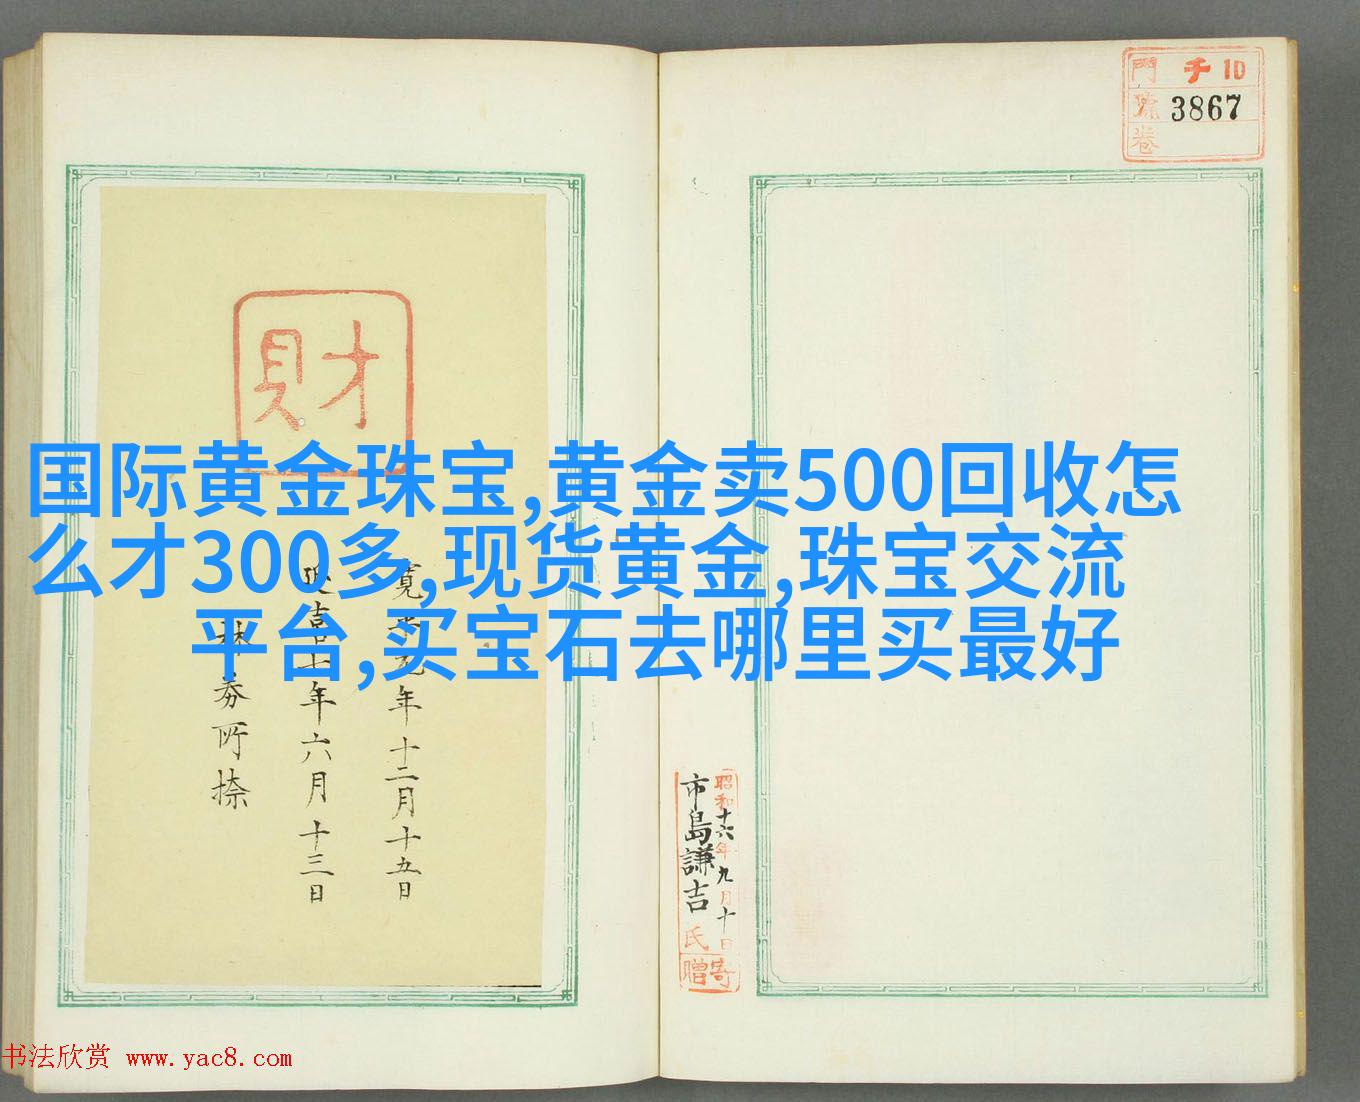 門 チ 10
號 3867
卷
財
国际黄金珠宝,黄金卖500回收怎
么才300多,现货黄金,珠宝交流
平台,买宝石去哪里买最好
寛 元年十二月十五日
延喜十年六月十三日
所捺
昭和十六年九月十日
市島謙吉氏
寄贈
书法欣赏 www.yac8.com